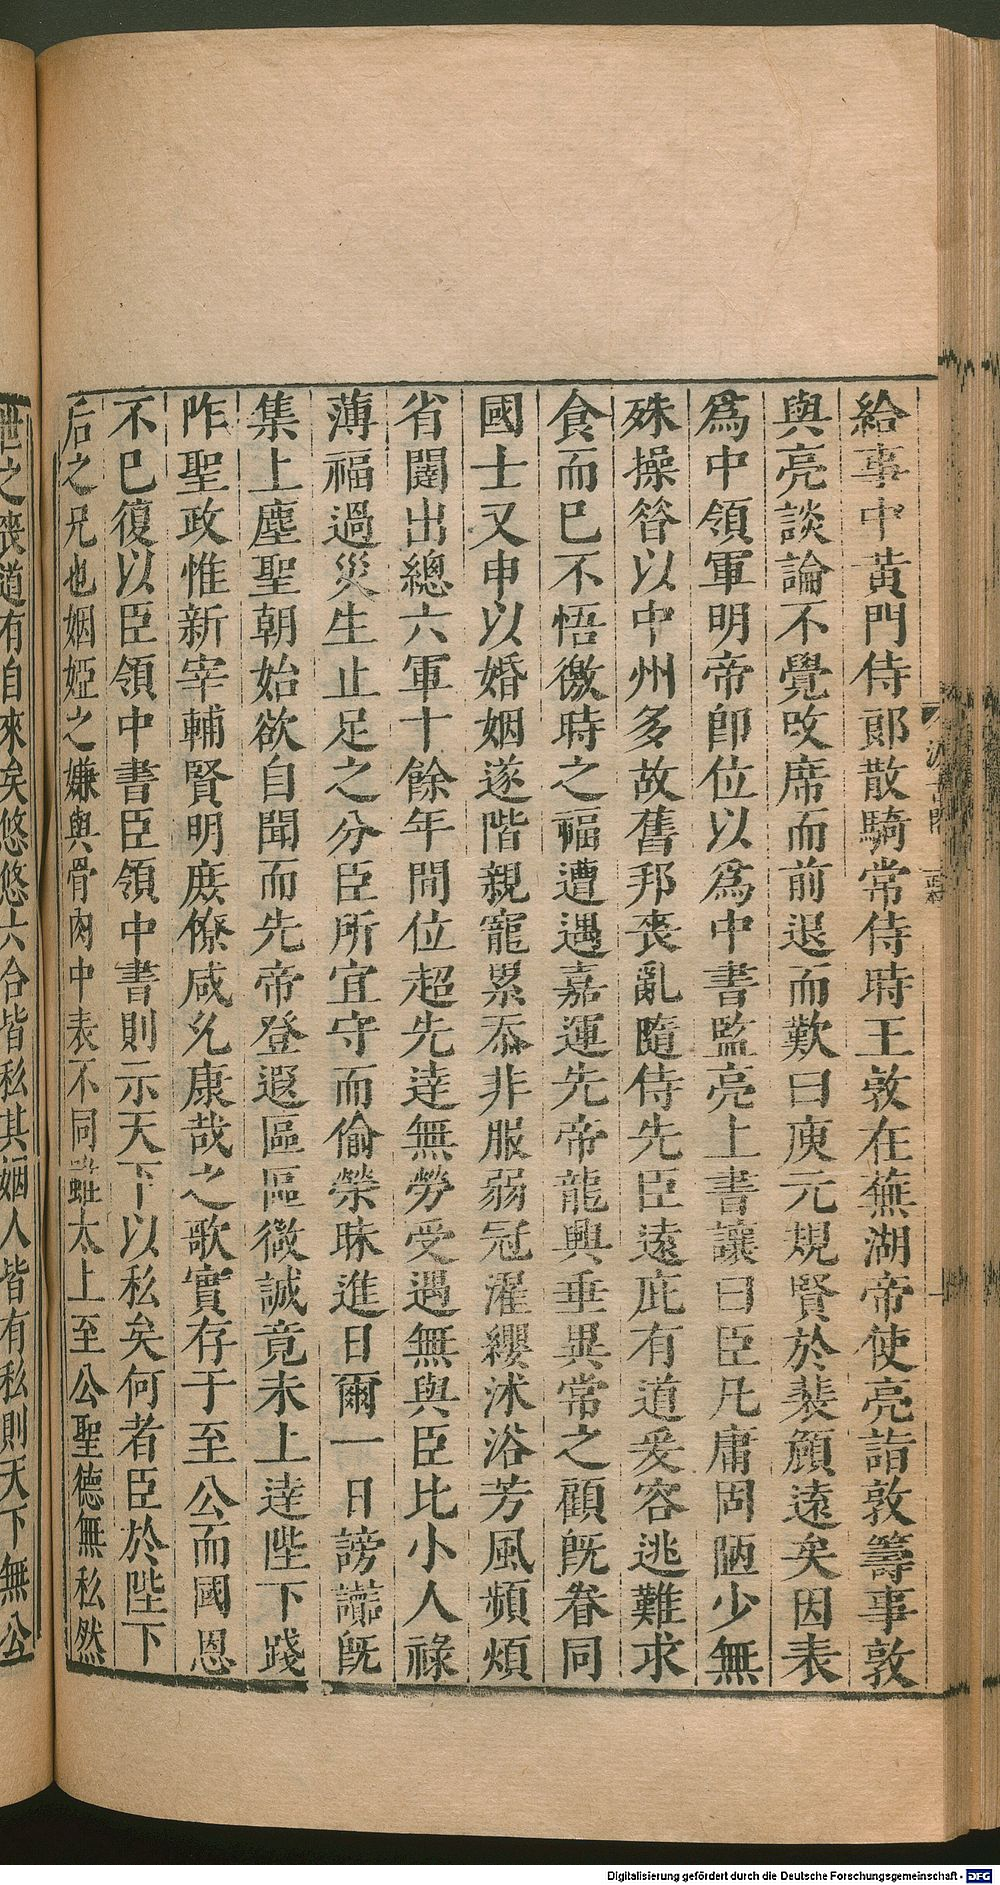 給事中黃門侍郎散騎常侍時王敦在蕪湖帝使亮詣敦籌事敦
與亮談論不覺攺席而前退而歎曰庾元規賢於裴頠遠矣因表
爲中領軍明帝卽位以爲中書監亮上書讓曰臣凡庸固陋少無
殊操昝以中州多故舊邦喪亂隨侍先臣遠庇有道爰容逃難求
食而已不悟徼時之福遭遇嘉運先帝龍興垂異常之顧旣眷同
國士又申以婚姻遂階親寵累忝非服弱冠濯纓沭浴芳風頻煩
省闥出總六軍十餘年間位超先達無勞受遇無與臣比小人祿
薄福過災生止足之分臣所宜守而偷榮昧進日爾一日謗讟旣
集上塵聖朝始欲自聞而先帝登遐區區微誠竟未上達陛下踐
咋聖政惟新宰輔賢明庶僚咸允康哉之歌實存于至公而國恩
不已復以臣領中書臣領中書則示天下以私矣何者臣於陛下
后之兄也姻婭之嫌與骨肉中表不同雖太上至公聖德無私然
世之喪道有自來矣悠悠六合皆私其姻人皆有私則天下無公
Digitalisierung gefördert durch die Deutsche Forschungsgemeinschaft - DFG